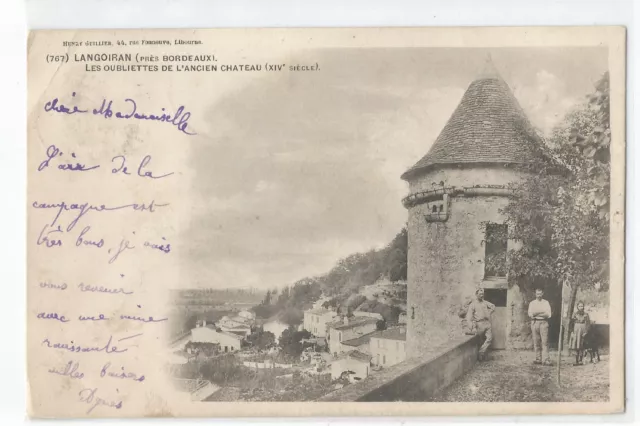 HENRY GUILLIER, 44, RUE FONNEUVE, LIBOURNE.
(767) LANGOIRAN (PRÈS BORDEAUX).
LES OUBLIETTES DE L'ANCIEN CHATEAU (XIVe SIÈCLE).
chère Mademoiselle
L'air de la
campagne est
très bons, je vais
vous revenir
avec une mine
mille baisers